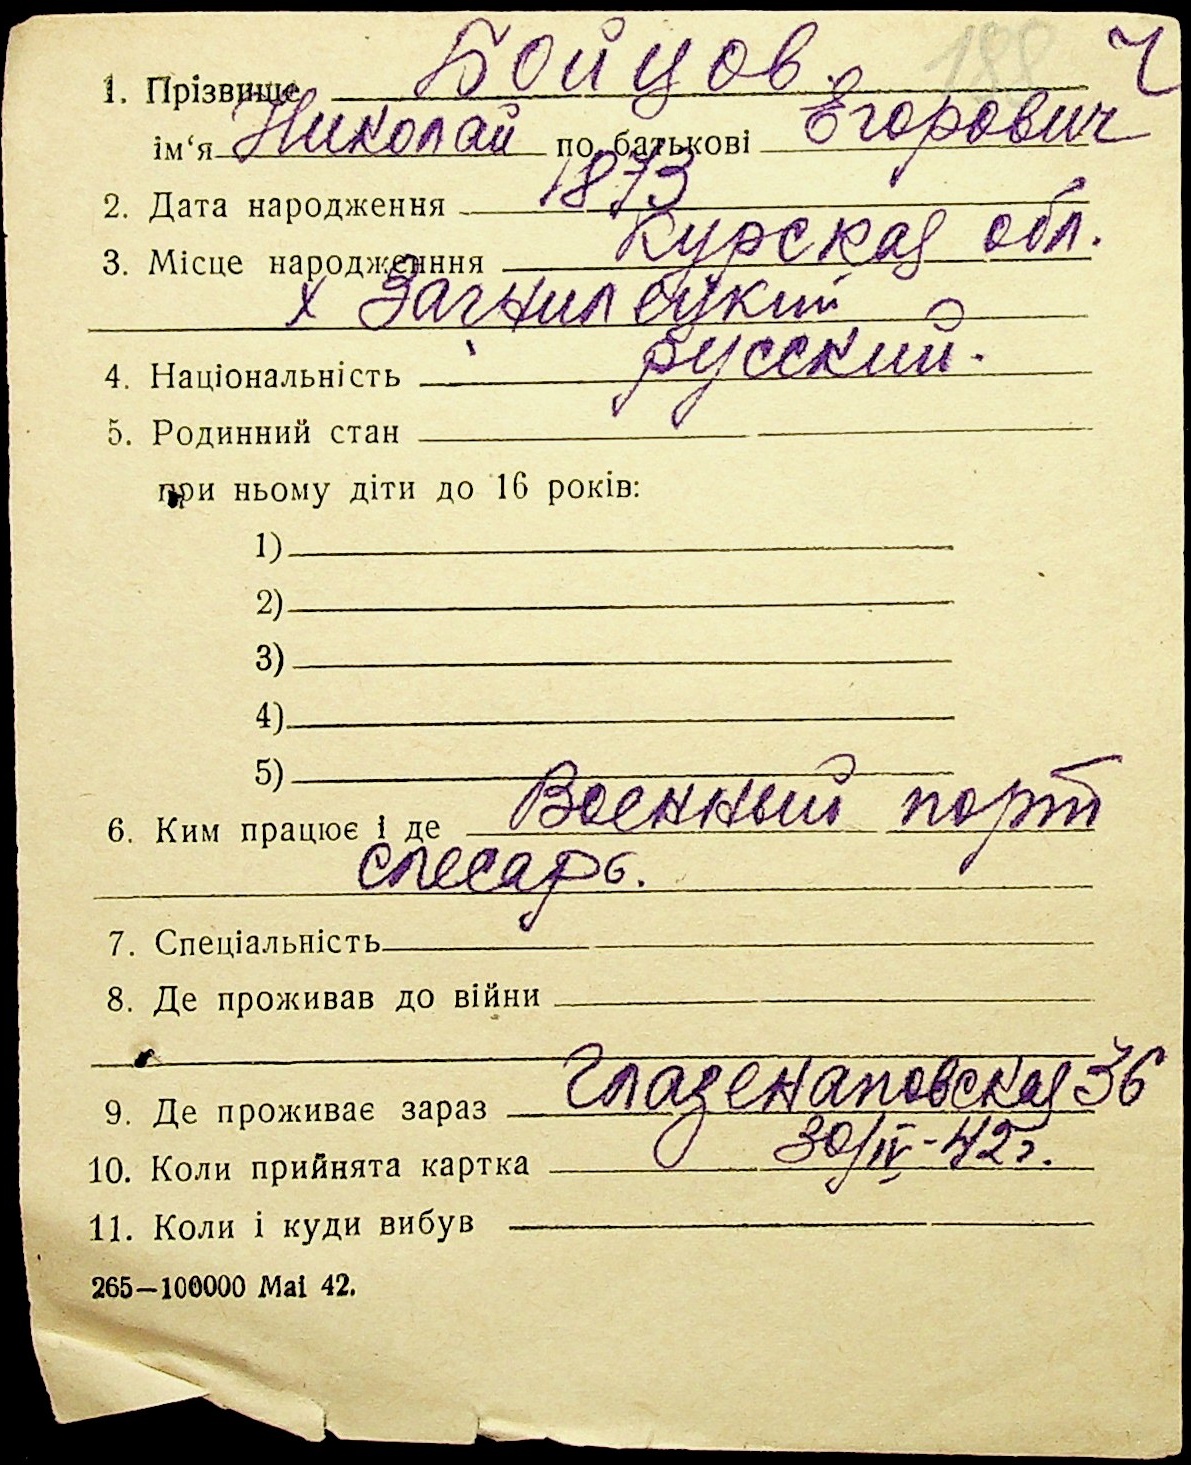 188 Ч
1. Прізвище Бойцов.
ім‘я Николай по батькові Егорович
2. Дата народження 1873
3. Місце народженння Курская обл.
х
4. Національність русский.
5. Родинний стан
при ньому діти до 16 років:
1)
2)
3)
4)
5)
6. Ким працює і де Военный порт
слесарь.
7. Спеціальність
8. Де проживав до війни
9. Де проживає зараз Глазенаповская 36
10. Коли прийнята картка 30/IV-42г.
11. Коли і куди вибув
265—100000 Mai 42.